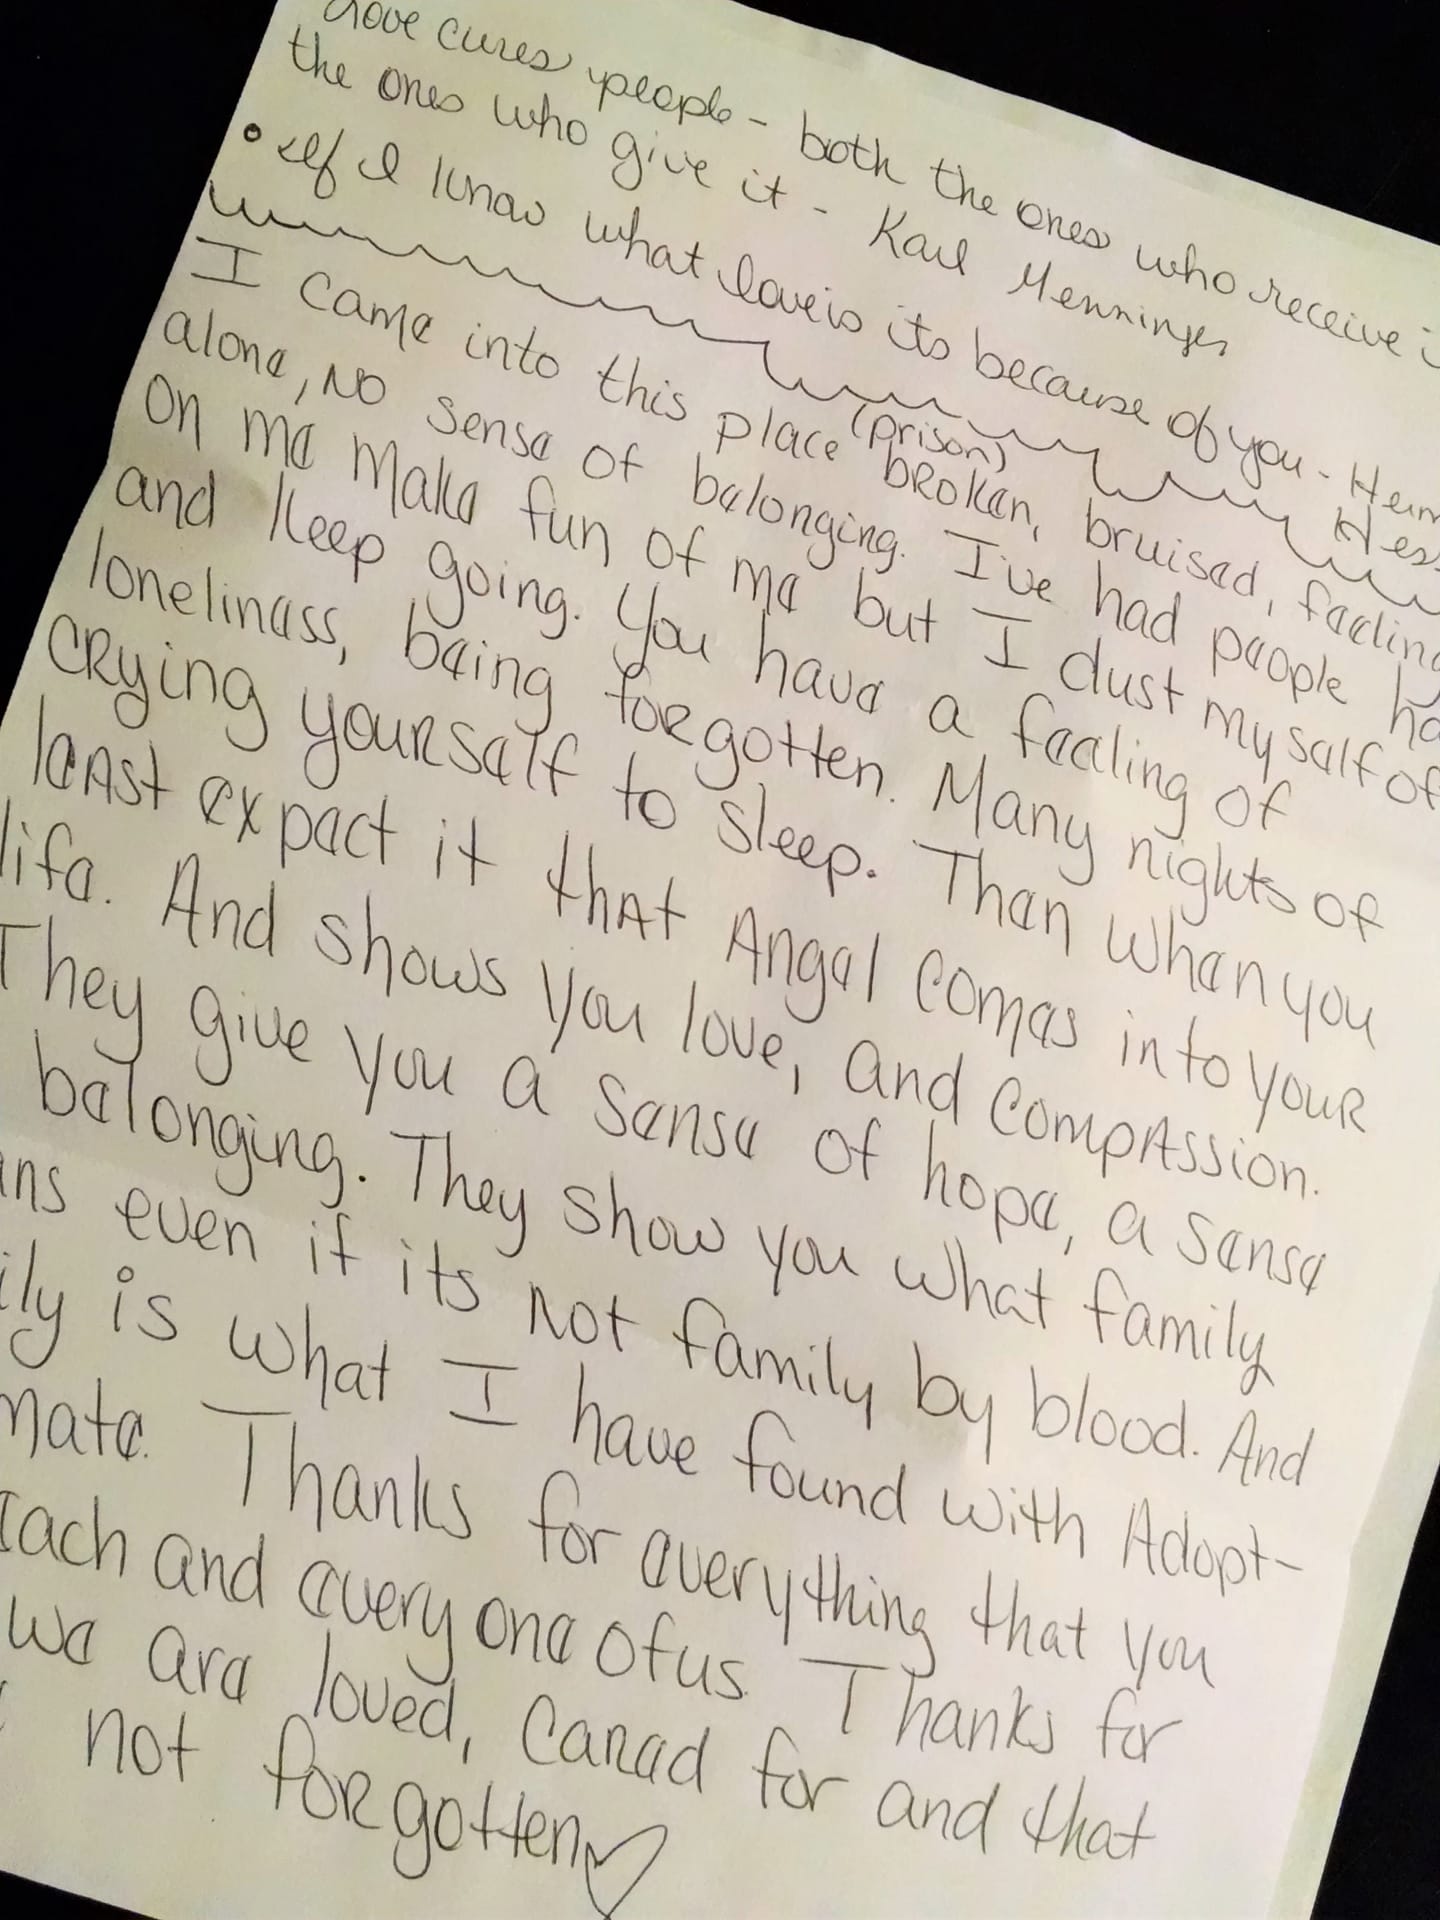 Love cures people - both the ones who receive
the ones who give it - Karl Menninger
• If I know what love is its because of you - Herm
Hess
I came into this place (prison) broken, bruised, feeling
alone, No sense of belonging. I've had people ha
on me make fun of me but I dust my self of
and keep going. You have a feeling of
loneliness, being forgotten. Many nights of
crying yourself to sleep. Than when you
least expect it that Angel comes into your
life. And shows you love, and compassion.
They give you a sense of hope, a sense
belonging. They show you what family
ans even if its not family by blood. And
ily is what I have found with Adopt-
mate. Thanks for everything that you
each and every one of us. Thanks for
we are loved, cared for and that
not forgotten♡